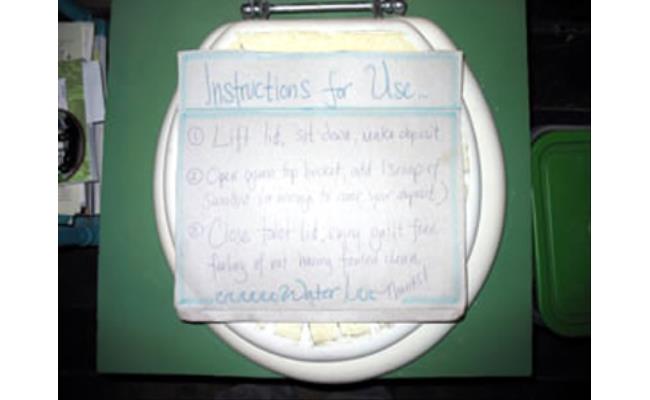 Instructions for Use...
① Lift lid, sit down, make deposit
② Open green top bucket, add 1 scoop of
sawdust (or enough to cover your deposit)
③ Close toilet lid, enjoy guilt free
feeling of not having fouled clean
Water Thanks!